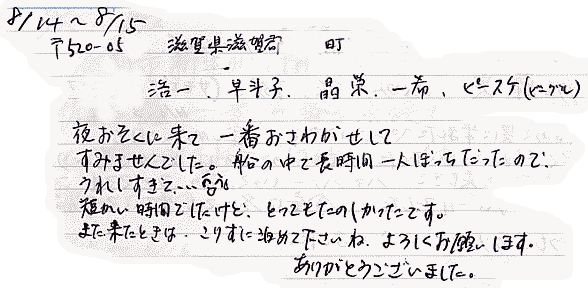 8/14～8/15
〒520-05 滋賀県滋賀郡 町
浩一、早斗子、晶栄、一希、ピースケ(ビーグル)
夜おそくに来て 一番おさわがせして
すみませんでした。船の中で長時間一人ぼっちだったので、
うれしすぎて…
短かい時間でしたけど、とってもたのしかったです。
また来たときは、こりずに泊めて下さいね。よろしくお願いします。
ありがとうございました。